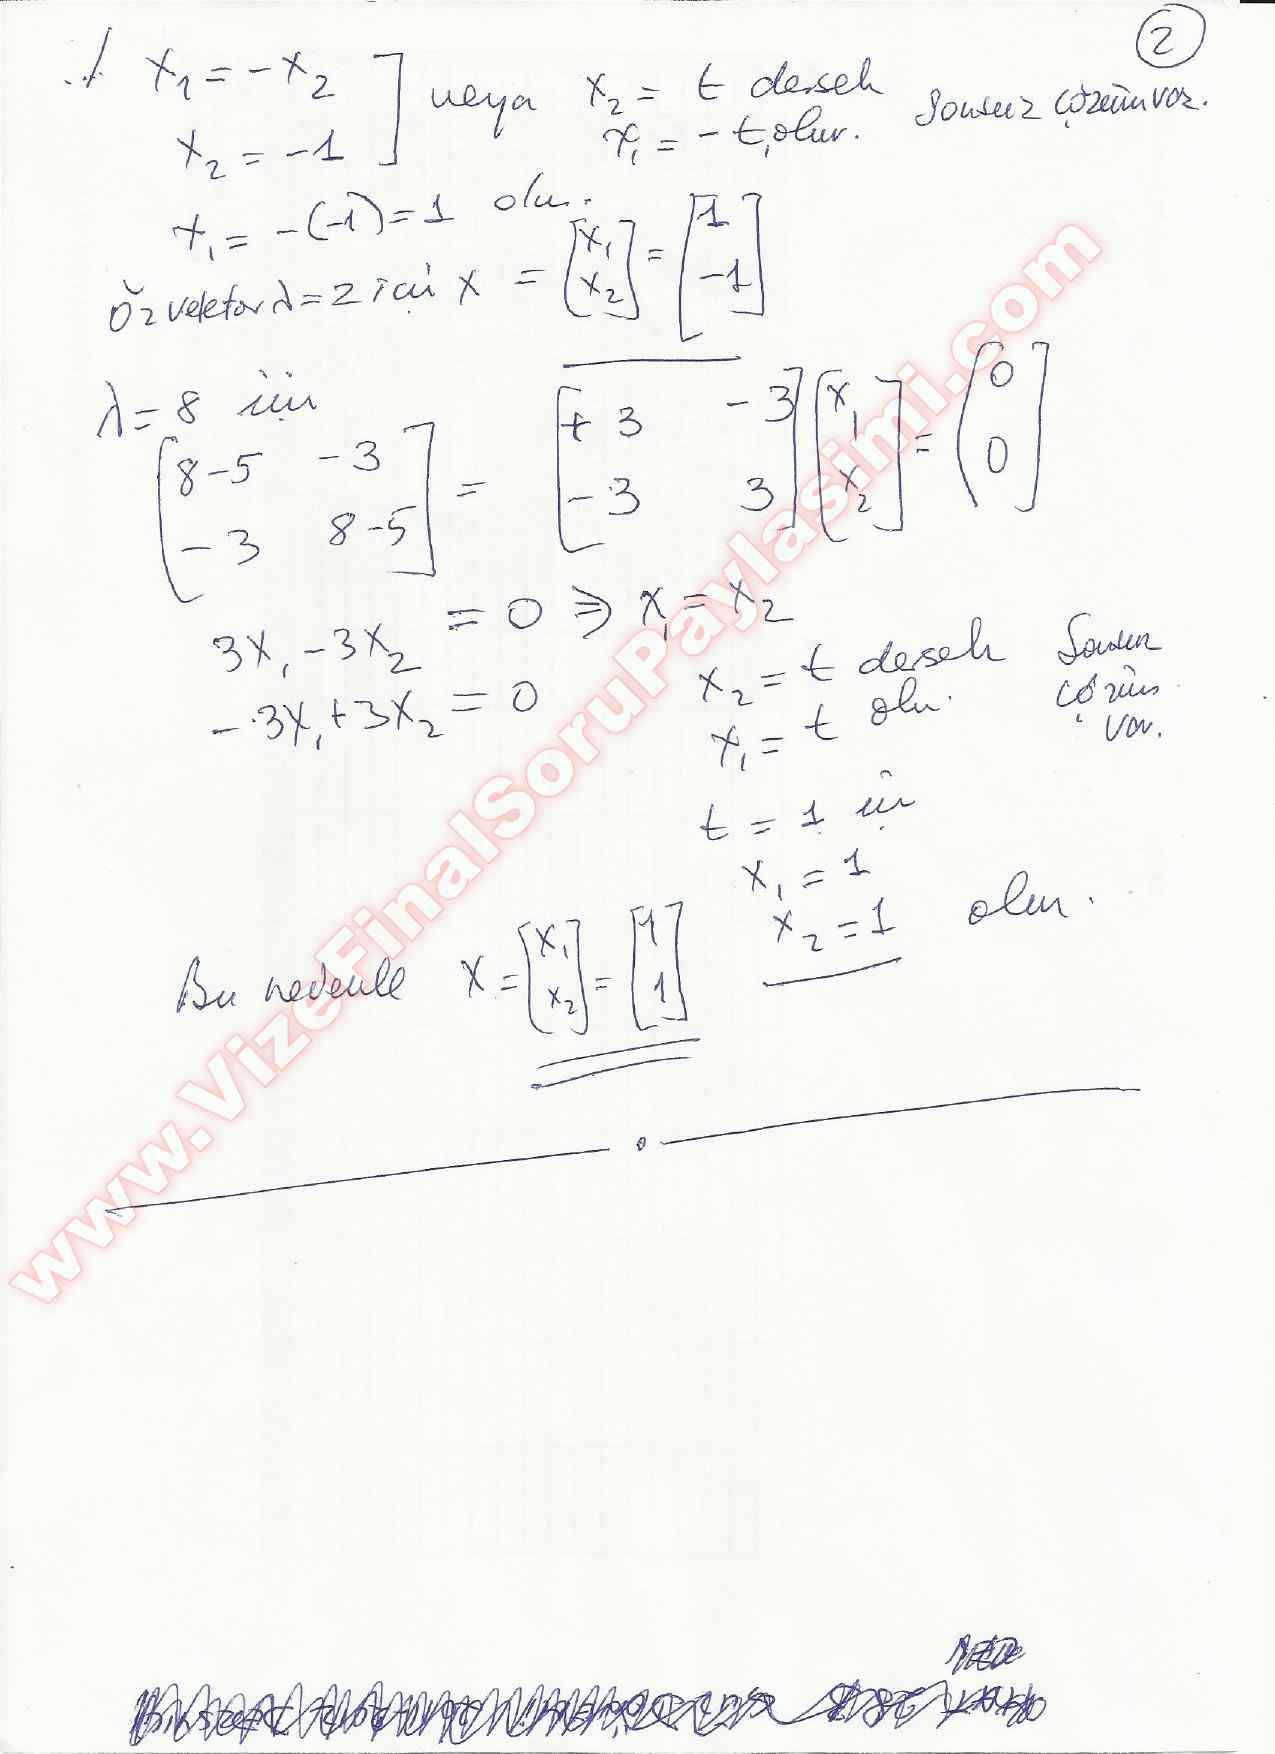 2
./ x₁ = -x₂ ] veya x₂ = t dersek sonsuz çözüm var.
x₂ = -1 x₁ = -t, olur.
x₁ = -(-1) = 1 olur.
Özvektör λ=2 için x = [x₁ x₂] = [1 -1]
λ = 8 için
[8-5 -3] = [+3 -3] [x₁] = [0]
[-3 8-5] [-3 3] [x₂] [0]
3x₁ - 3x₂ = 0 ⇒ x₁ = x₂
-3x₁ + 3x₂ = 0 x₂ = t dersek Sonsuz
x₁ = t olur. çözüm
var.
t = 1 için
x₁ = 1
x₂ = 1 olur.
Bu nedenle x = [x₁ x₂] = [1 1]
www.VizeFinalSoruPaylasimi.com